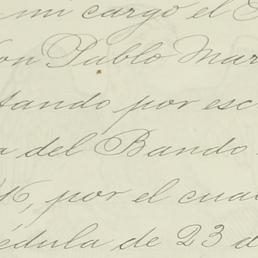 mi cargo el
on Pablo Mar
tando por esc
a del Bando
16, por el cua
édula de 23 d